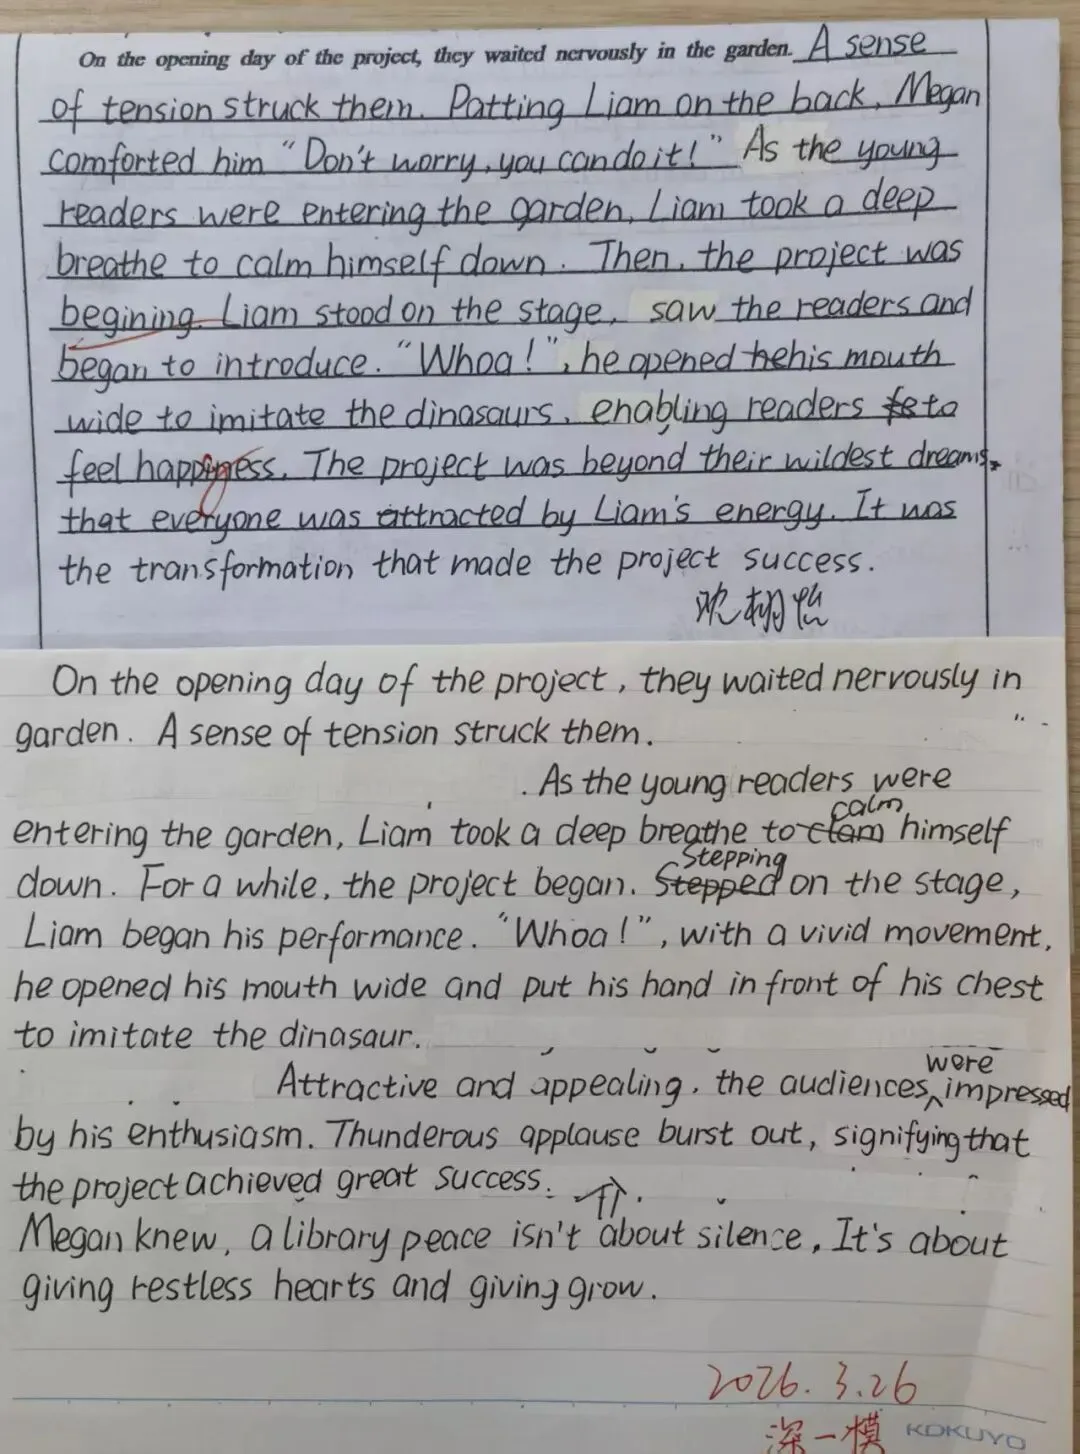 On the opening day of the project, they waited nervously in the garden. A sense
of tension struck them. Patting Liam on the back, Megan
comforted him "Don't worry, you can do it!" As the young
readers were entering the garden, Liam took a deep
breathe to calm himself down. Then, the project was
begining. Liam stood on the stage, saw the readers and
began to introduce. "Whoa!", he opened he his mouth
wide to imitate the dinasaurs, enabling readers to
feel happiness. The project was beyond their wildest dreams,
that everyone was attracted by Liam's energy. It was
the transformation that made the project success.
On the opening day of the project, they waited nervously in
garden. A sense of tension struck them.
. As the young readers were
calm
entering the garden, Liam took a deep breathe to clam himself
Stepping
down. For a while, the project began. Stepped on the stage,
Liam began his performance. "Whoa!", with a vivid movement,
he opened his mouth wide and put his hand in front of his chest
to imitate the dinasaur.
were
Attractive and appealing, the audiences impressed
by his enthusiasm. Thunderous applause burst out, signifying that
the project achieved great success.
Megan knew, a library peace isn't about silence, It's about
giving restless hearts and giving grow.
2026.3.26
深一模 KOKUYO